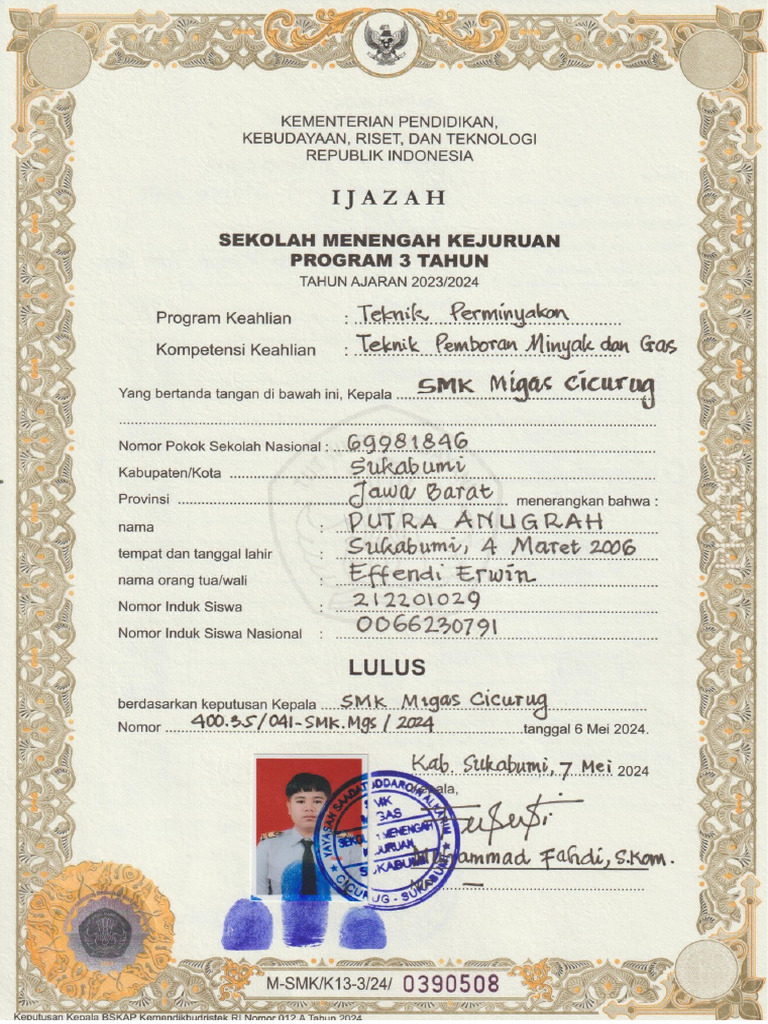 KEMENTERIAN PENDIDIKAN,
KEBUDAYAAN, RISET, DAN TEKNOLOGI
REPUBLIK INDONESIA
IJAZAH
SEKOLAH MENENGAH KEJURUAN
PROGRAM 3 TAHUN
TAHUN AJARAN 2023/2024
Program Keahlian : Teknik Perminyakan
Kompetensi Keahlian : Teknik Pemboran Minyak dan Gas
Yang bertanda tangan di bawah ini, Kepala SMK Migas Cicurug
Nomor Pokok Sekolah Nasional : 69981846
Kabupaten/Kota Sukabumi
Provinsi Jawa Barat menerangkan bahwa :
nama : PUTRA ANUGRAH
tempat dan tanggal lahir : Sukabumi, 4 Maret 2006
nama orang tua/wali : Effendi Erwin
Nomor Induk Siswa : 212201029
Nomor Induk Siswa Nasional : 0066230791
LULUS
berdasarkan keputusan Kepala SMK Migas Cicurug
Nomor 400.3.5/041-SMK.Mgs/2024 tanggal 6 Mei 2024.
Kab. Sukabumi, 7 Mei 2024
Kepala,
YAYASAN
SMK
MIGAS
SEKOLAH MENENGAH
KEJURUAN
SUKABUMI
CICURUG - SUKABUMI
Muhammad Fahdi, S.Kom.
M-SMK/K13-3/24/ 0390508
Keputusan Kepala BSKAP Kemendikbudristek RI Nomor 012.A Tahun 2024